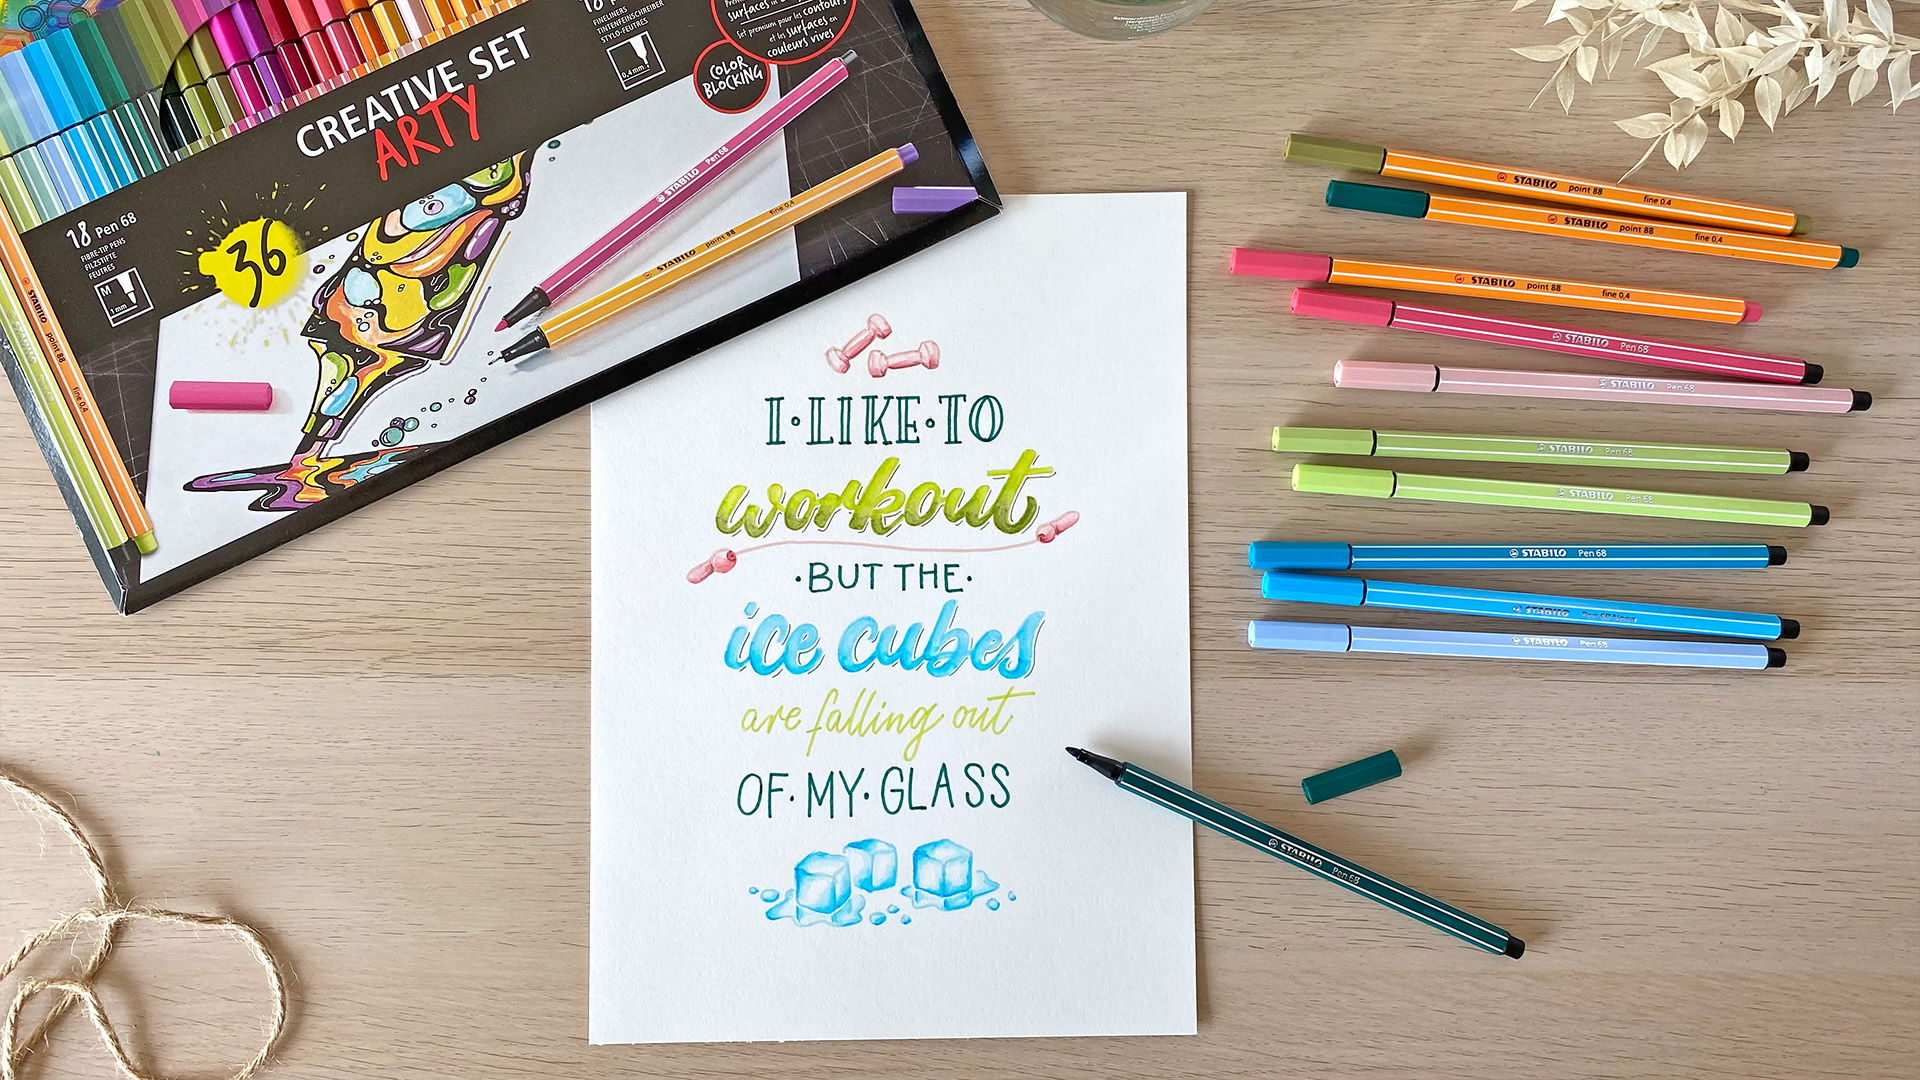 CREATIVE SET
ARTY
18 Pen 68
FIBRE-TIP PENS
FILZSTIFTE
FEUTRES
M
1 mm
36
FINELINERS
TINTENFEINSCHREIBER
STYLO-FEUTRES
0,4 mm
surfaces
Set premium pour les contours
et les surfaces en
couleurs vives
COLOR
BLOCKING
STABILO Pen 68
STABILO point 88 fine 0,4
STABILO point 88 fine 0,4
I·LIKE·TO
workout
·BUT THE·
ice cubes
are falling out
OF·MY·GLASS
STABILO point 88 fine 0,4
STABILO point 88 fine 0,4
STABILO point 88 fine 0,4
STABILO Pen 68
STABILO Pen 68
STABILO Pen 68
STABILO Pen 68
STABILO Pen 68
STABILO
STABILO Pen 68
STABILO Pen 68